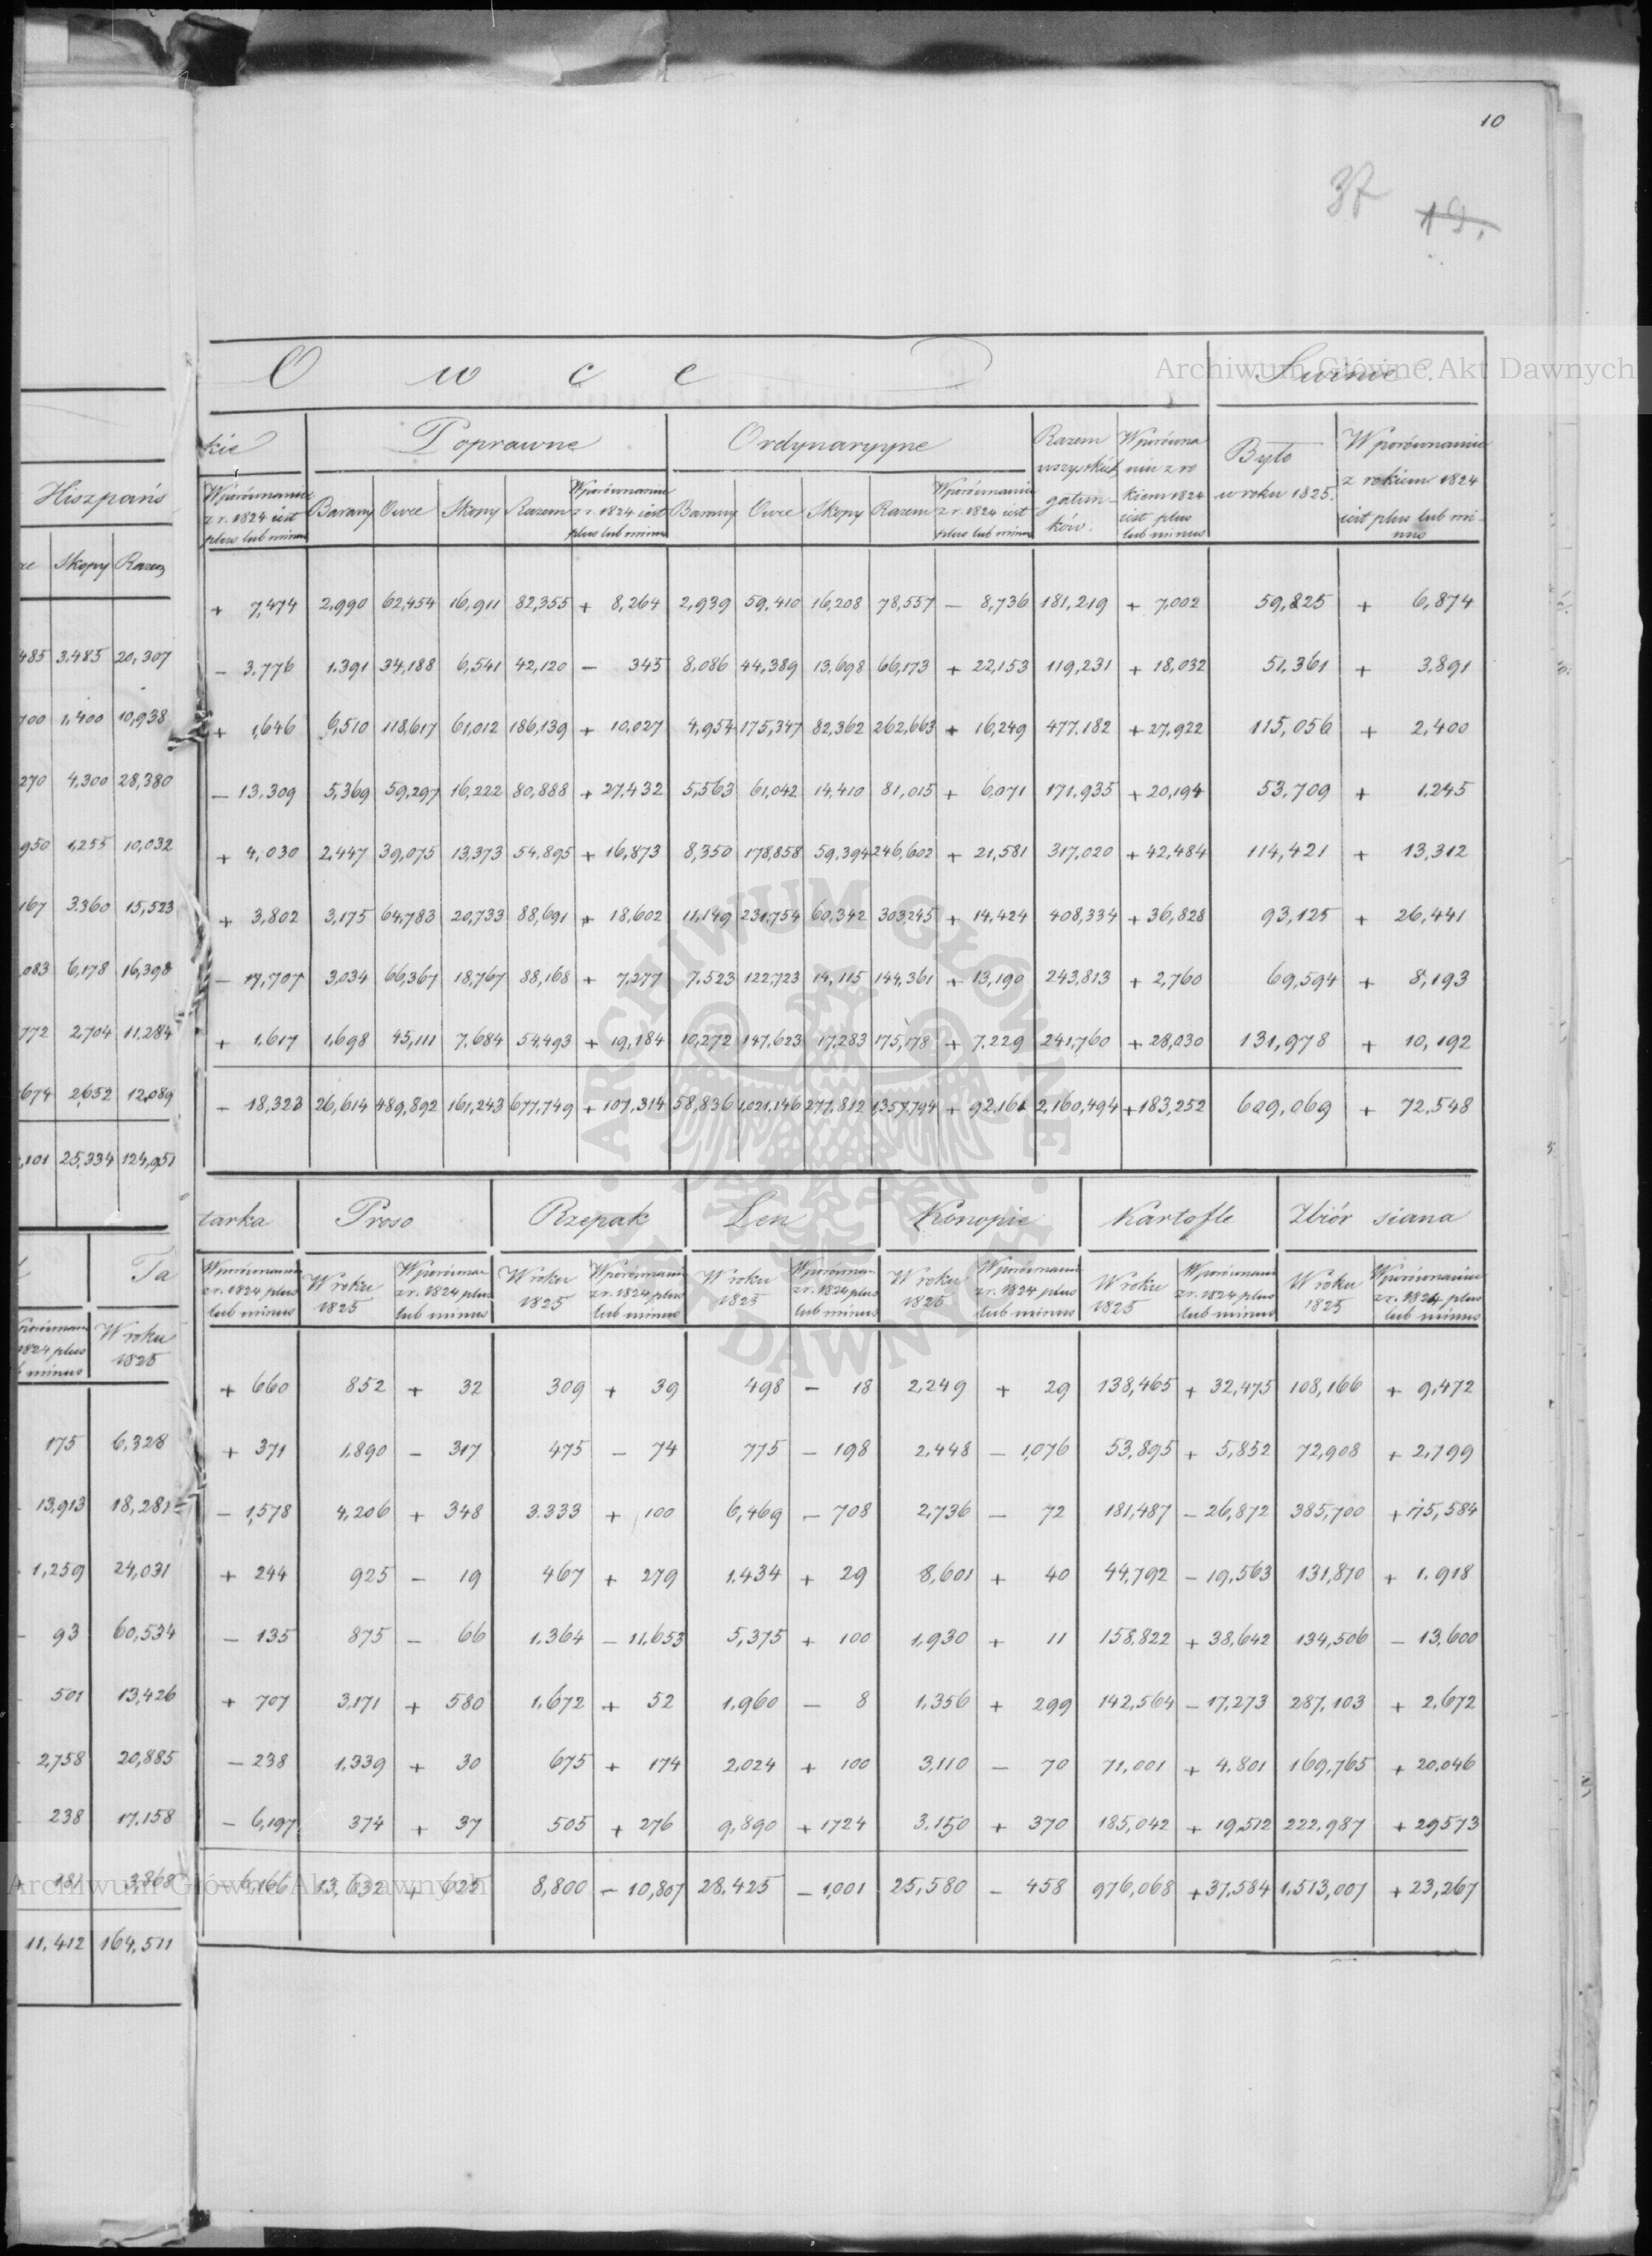 10
37
19.
Archiwum Główne Akt Dawnych
Hiszpańs
Skopy Razem
485 3.485 20,307
700 1,400 10,938
270 4,300 28,380
950 1,255 10,032
167 3.360 15,523
,083 6,178 16,398
772 2,704 11,284
674 2,652 12,089
,101 25,334 124,951
Ta
1824 plus W roku
minus 1825
175 6,328
13,913 18,281
1,259 24,031
- 93 60,534
501 13,426
2,758 20,885
238 17.158
+ 181 3,868
11,412 164,511
Owce Świnie
kie Poprawne Ordynaryyne Razem wszystkich gatunków. W porównaniu z rokiem 1824 iest plus lub minus Było w roku 1825. W porównaniu z rokiem 1824 iest plus lub minus
W porównaniu z r. 1824 iest plus lub minus Barany Owce Skopy Razem W porównaniu z r. 1824 iest plus lub minus Barany Owce Skopy Razem W porównaniu z r. 1824 iest plus lub minus
+ 7,474 2,990 62,454 16,911 82,355 + 8,264 2,939 59,410 16,208 78,557 - 8,736 181,219 + 7,002 59,825 + 6,874
- 3.776 1.391 34,188 6,541 42,120 - 345 8,086 44,389 13,698 66,173 + 22,153 119,231 + 18,032 51,361 + 3,891
+ 1,646 6,510 118,617 61,012 186,139 + 10,027 4,954 175,347 82,362 262,663 + 16,249 477.182 + 27,922 115,056 + 2,400
- 13.309 5,369 59,297 16,222 80,888 + 27,432 5,563 61,042 14,410 81,015 + 6,071 171.935 + 20,194 53.709 + 1.245
+ 4,030 2,447 39,075 13,373 54,895 + 16,873 8,350 178,858 59,394 246,602 + 21,581 317,020 + 42,484 114,421 + 13,312
+ 3,802 3,175 64,783 20,733 88,691 + 18,602 11,149 231,754 60,342 303,245 + 14,424 408,334 + 36,828 93,125 + 26,441
- 17,707 3,034 66,367 18,767 88,168 + 7,277 7.523 122,723 14,115 144,361 + 13,190 243,813 + 2,760 69,594 + 8,193
+ 1,617 1,698 45,111 7,684 54,493 + 19,184 10,272 147,623 17,283 175,178 + 7,229 241,760 + 28,030 131,978 + 10,192
- 18,323 26,614 489,892 161,243 677,749 + 107,314 58,836 1,021,146 277,812 1,357,794 + 92,161 2,160,494 + 183,252 609,069 + 72,548
tarka Proso Rzepak Len Konopie Kartofle Zbiór siana
W porównaniu z r. 1824 plus lub minus W roku 1825 W porównan. z r. 1824 plus lub minus W roku 1825 W porównaniu z r. 1824 plus lub minus W roku 1825 W porównan. z r. 1824 plus lub minus W roku 1825 W porównaniu z r. 1824 plus lub minus W roku 1825 W porównaniu z r. 1824 plus lub minus W roku 1825 W porównaniu z r. 1824 plus lub minus
+ 660 852 + 32 309 + 39 498 - 18 2,249 + 29 138,465 + 32,475 108,166 + 9,472
+ 371 1,890 - 317 475 - 74 775 - 198 2,448 - 1,076 53,895 + 5,852 72,908 + 2,799
- 1,578 4,206 + 348 3.333 + 100 6,469 - 708 2,736 - 72 181,487 - 26,872 385,700 + 175,584
+ 244 925 - 19 467 + 279 1.434 + 29 8,601 + 40 44,792 - 19,563 131,870 + 1.918
- 135 875 - 66 1.364 - 11,653 5,375 + 100 1,930 + 11 158,822 + 38,642 134,506 - 13,600
+ 707 3,171 + 580 1.672 + 52 1,960 - 8 1,356 + 299 142,564 - 17,273 287,103 + 2,672
- 238 1,339 + 30 675 + 174 2,024 + 100 3,110 - 70 71,001 + 4,801 169,765 + 20,046
- 6,197 374 + 37 505 + 276 9,890 + 1724 3.150 + 370 185,042 + 19,512 222.987 + 29573
- 6,166 13,632 + 625 8,800 - 10,807 28.425 - 1,001 25,580 - 458 976,068 + 37,584 1,513,007 + 23,267
ARCHIWUM GŁÓWNE AKT DAWNYCH
Archiwum Główne Akt Dawnych